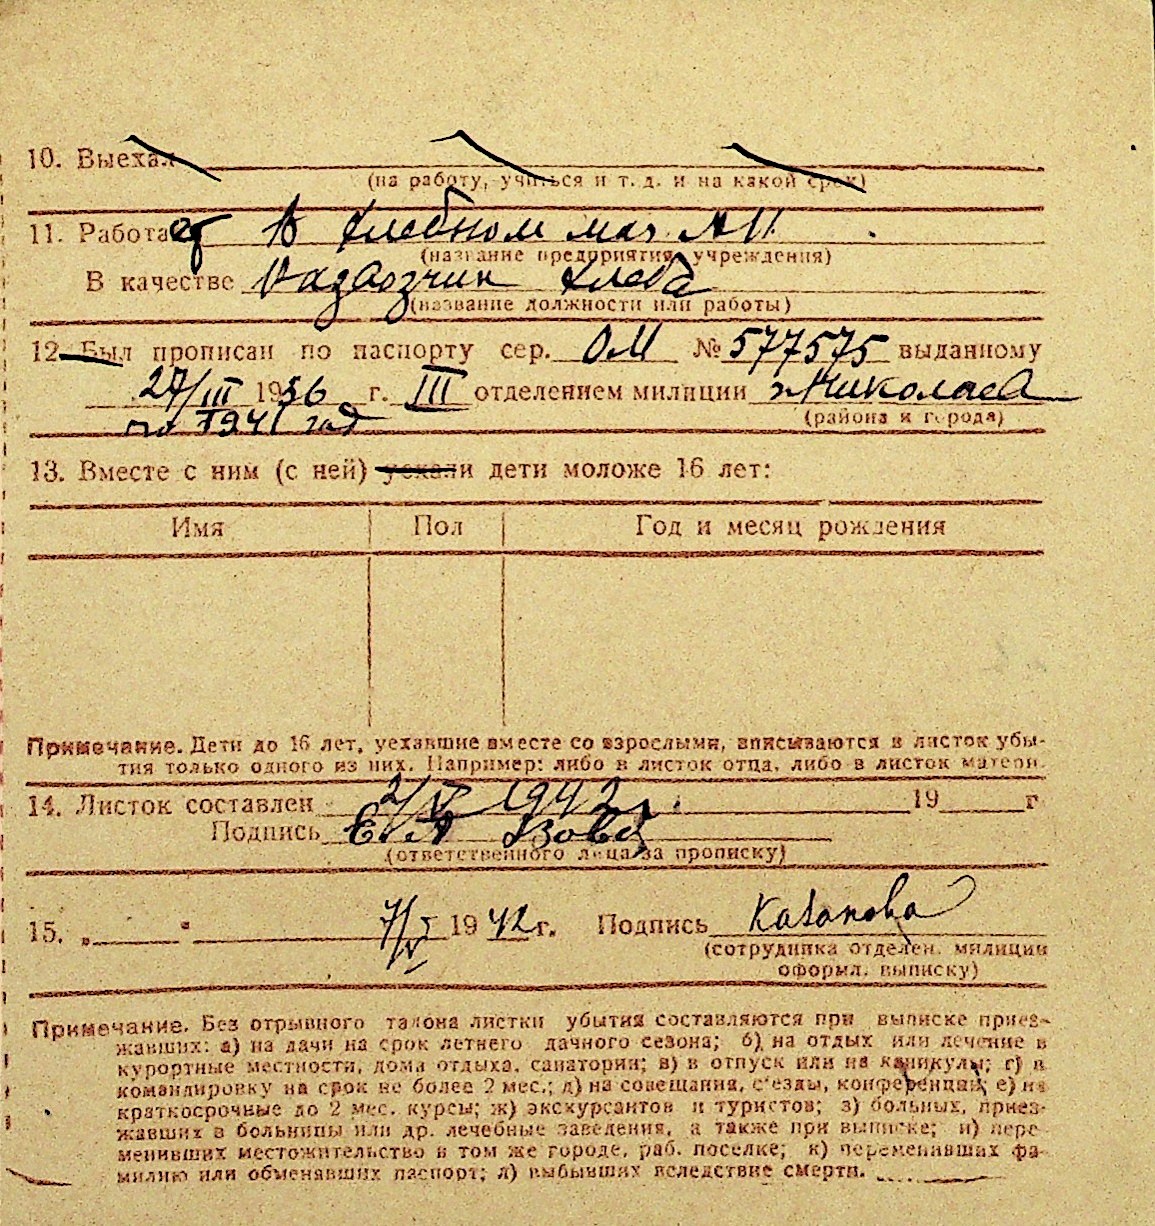 10. Выехал
(на работу, учиться и т. д. и на какой срок)
11. Работает в хлебном маг.
(название предприятия, учреждения)
В качестве развозчик хлеба
(название должности или работы)
12. Был прописан по паспорту сер. ОМ № 577575 выданному
27/III 1936 г. III отделением милиции г. Николаева
(района и города)
по 1941 год
13. Вместе с ним (с ней) уехали дети моложе 16 лет:
Имя Пол Год и месяц рождения
Примечание. Дети до 16 лет, уехавшие вместе со взрослыми, вписываются в листок убы-
тия только одного из них. Например: либо в листок отца, либо в листок матери.
14. Листок составлен 2/V 1942 г. 19 г
Подпись
(ответственного лица за прописку)
15. „ “ 7/V 1942 г. Подпись
(сотрудника отделен. милиции
оформл. выписку)
Примечание. Без отрывного талона листки убытия составляются при выписке приез-
жавших: а) на дачи на срок летнего дачного сезона; б) на отдых или лечение в
курортные местности, дома отдыха, санатории; в) в отпуск или на каникулы; г) в
командировку на срок не более 2 мес.; д) на совещания, с'езды, конференции; е) на
краткосрочные до 2 мес. курсы; ж) экскурсантов и туристов; з) больных, приез-
жавших в больницы или др. лечебные заведения, а также при выписке; и) пере-
менивших местожительство в том же городе, раб. поселке; к) переменивших фа-
милию или обменявших паспорт; л) выбывших вследствие смерти.